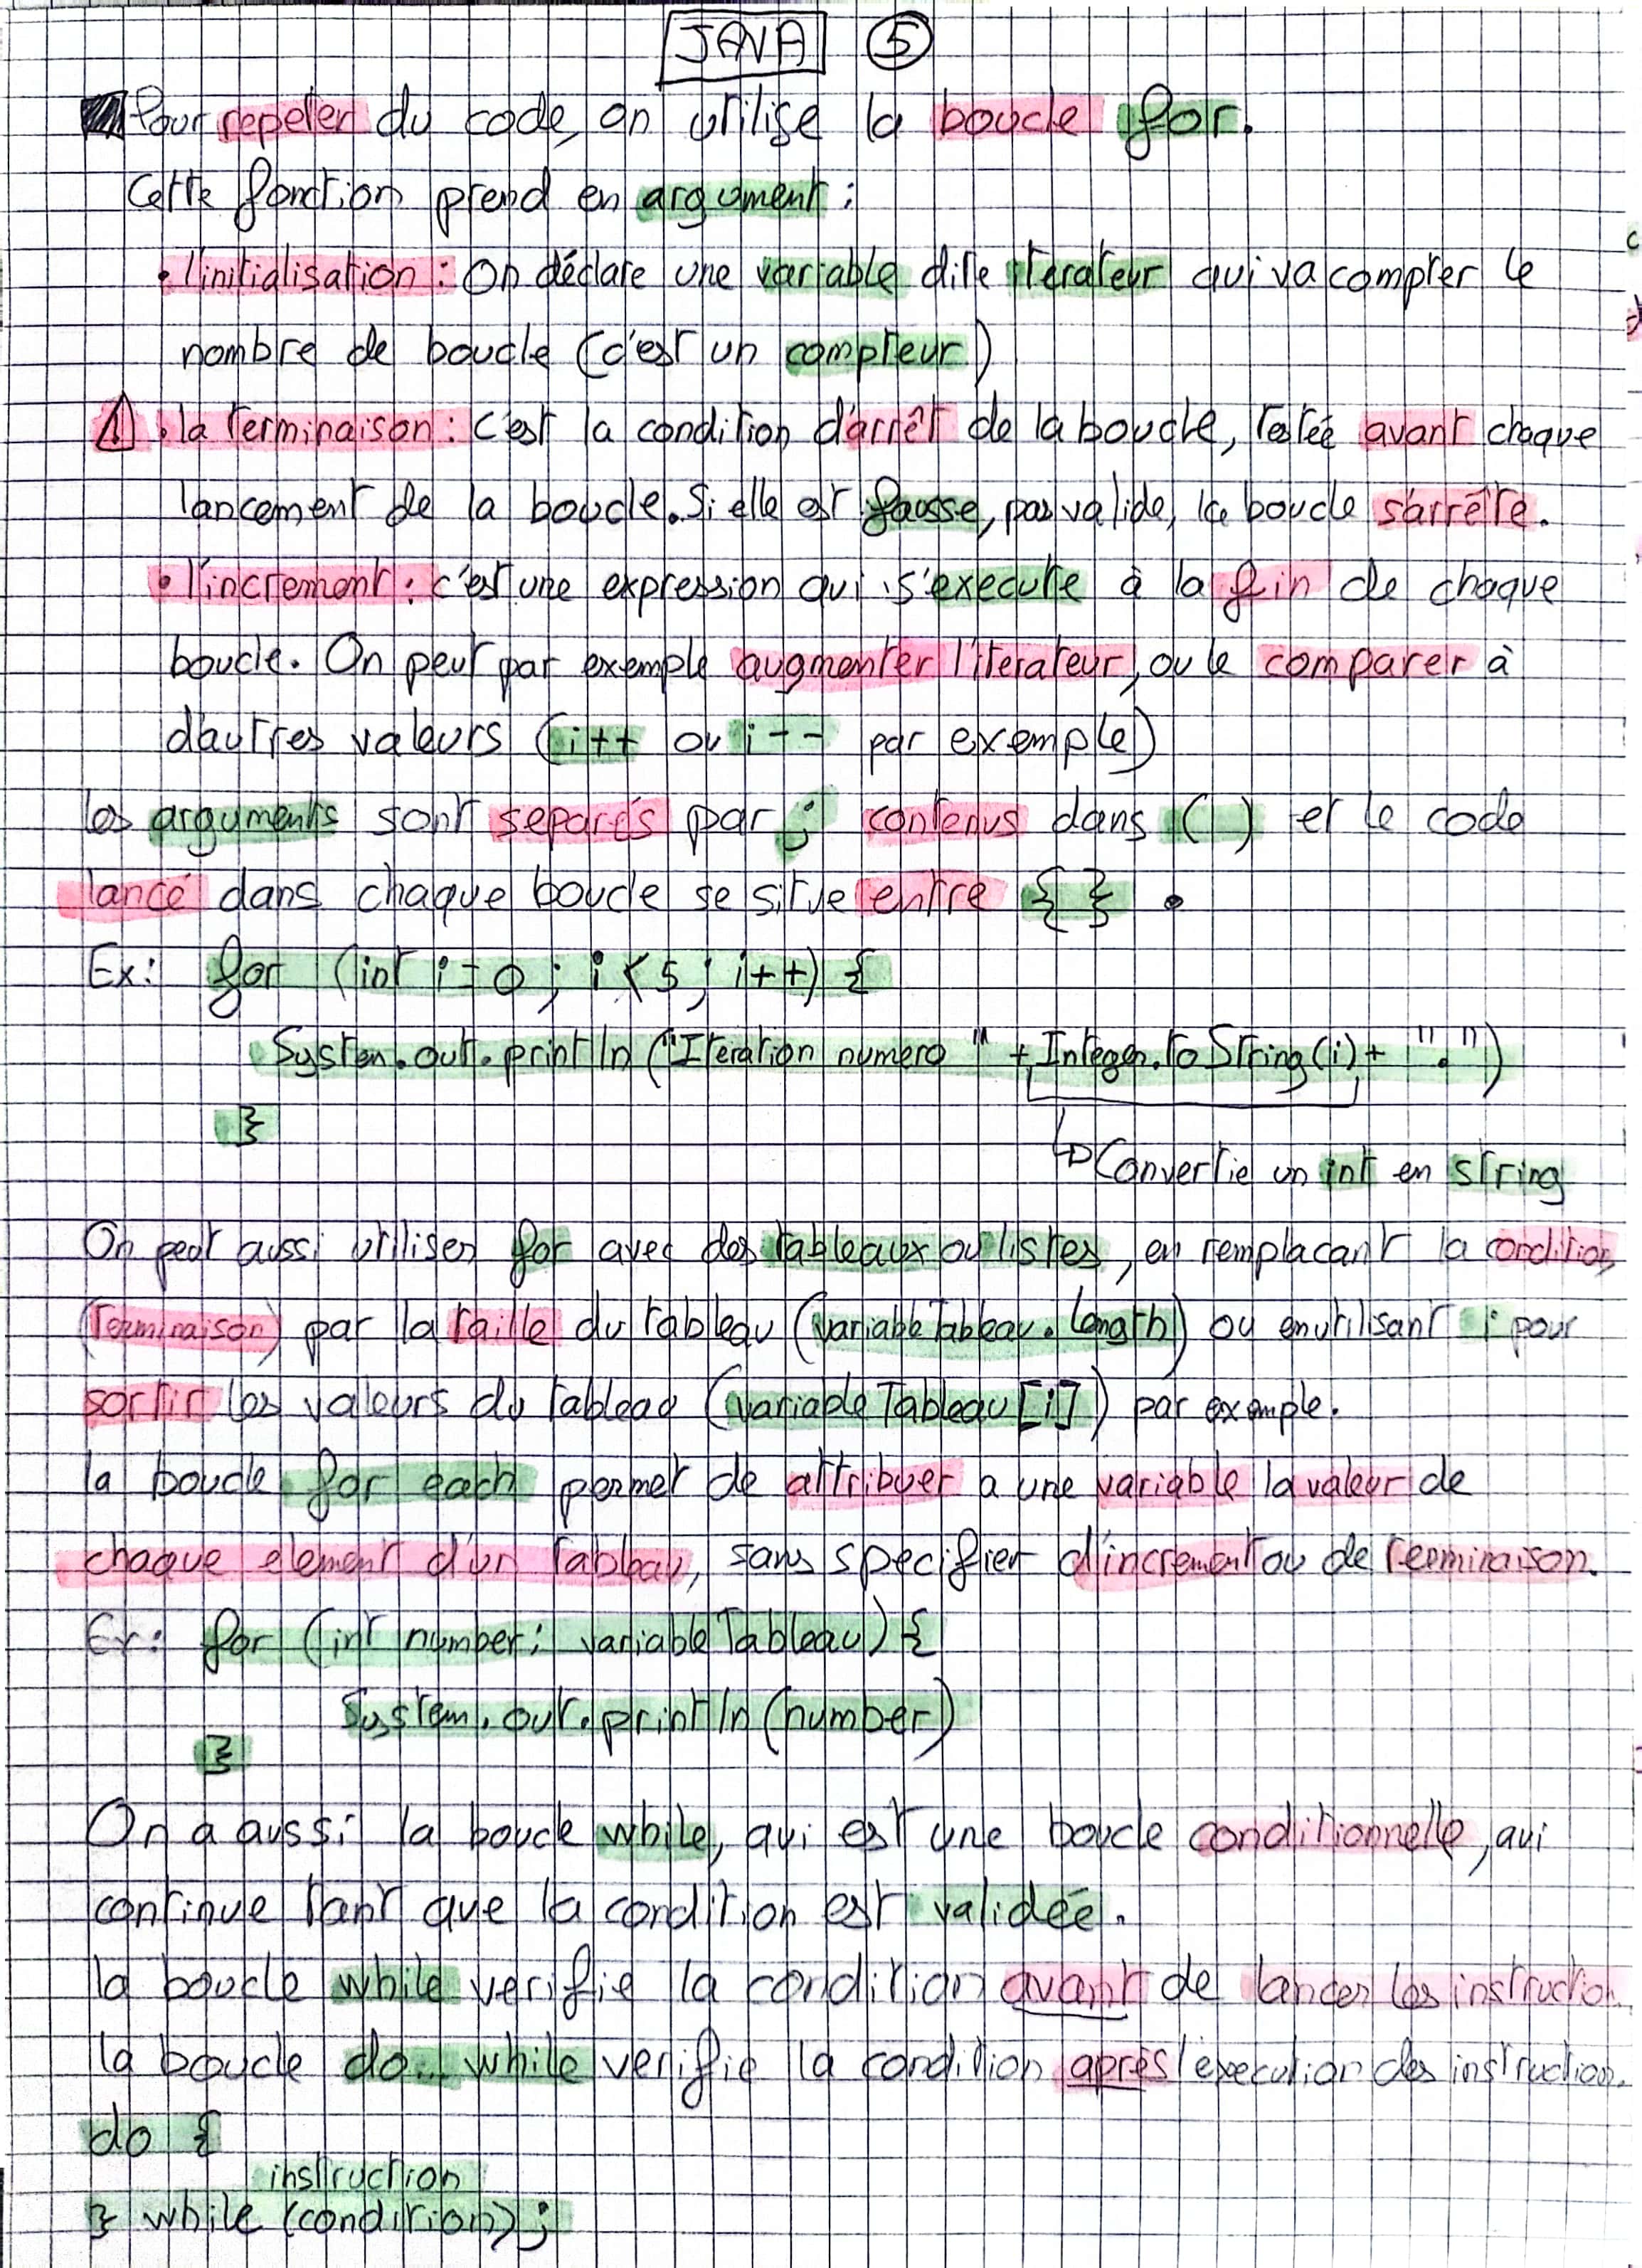 JAVA 5
Pour repeter du code, on utilise la boucle for.
Cette fonction prend en argument :
• l'initialisation : On déclare une variable dite iterateur qui va compter le
nombre de boucle (c'est un compteur)
⚠ • la terminaison : c'est la condition d'arrêt de la boucle, testée avant chaque
lancement de la boucle. Si elle est fausse, pas valide, la boucle s'arrête.
• l'increment : c'est une expression qui s'execute à la fin de chaque
boucle. On peut par exemple augmenter l'iterateur, ou le comparer à
d'autres valeurs (i++ ou i-- par exemple)
les arguments sont separés par ; contenus dans ( ) et le code
lancé dans chaque boucle se situe entre { } .
Ex: for (int i = 0 ; i < 5 ; i++) {
System.out.println ("Iteration numero " + Integer.toString(i) + ".")
}
↳ Convertie un int en string
On peut aussi utiliser for avec des tableaux ou listes, en remplacant la condition
(terminaison) par la taille du tableau (variableTableau.length) ou en utilisant i pour
sortir les valeurs du tableau (variableTableau[i]) par exemple.
la boucle for each permet de attribuer a une variable la valeur de
chaque element d'un tableau, sans specifier d'increment ou de terminaison.
Ex: for (int number : variableTableau) {
System.out.println (number)
}
On a aussi la boucle while, qui est une boucle conditionnelle, qui
continue tant que la condition est validée.
la boucle while verifie la condition avant de lancer les instruction.
la boucle do... while verifie la condition après l'execution des instruction.
do {
instruction
} while (condition) ;